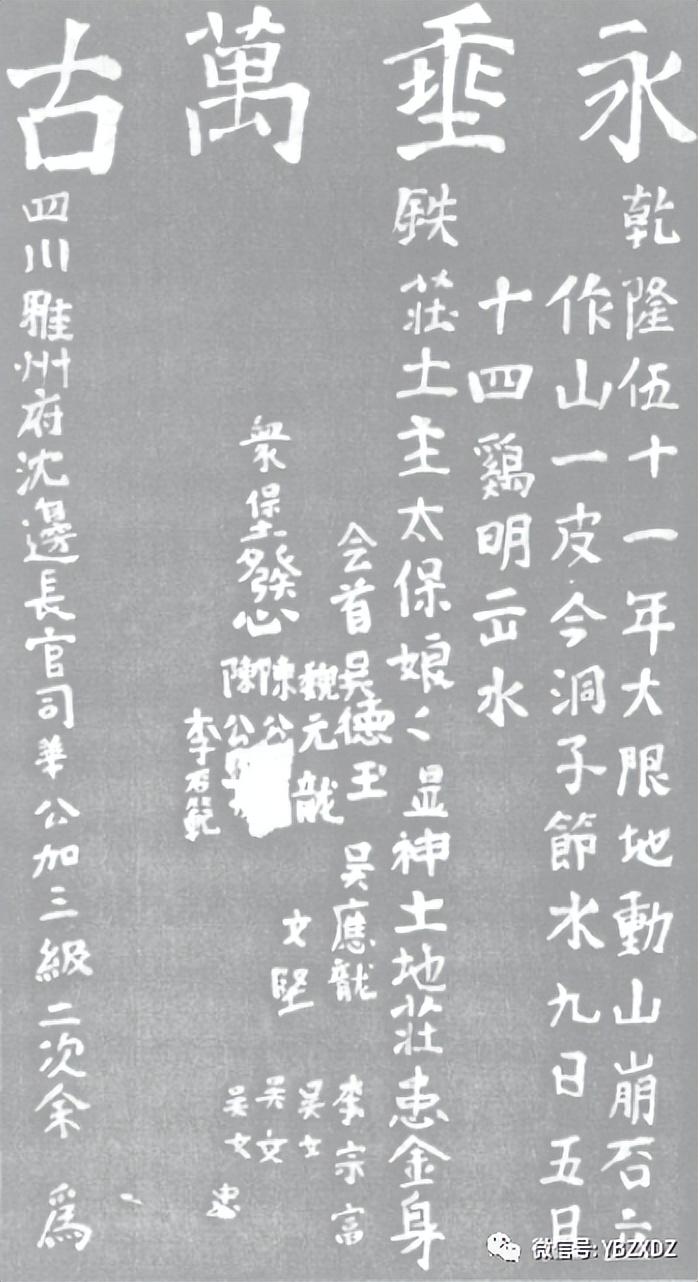 永垂萬古
乾隆伍十一年大限地動山崩石
作山一皮今洞子節水九日五月
十四鷄明水
鉄莊土主太保娘〻显神土地莊金身
会首吳德玉 吳應龍 李宗富
魏元龍 文 吳文
陳公 吳文
衆堡發心 陳公 吳文
李石範 忠
四川雅州府沈邊長官司華公加三級二次余 為
微信号: YBZXDZ